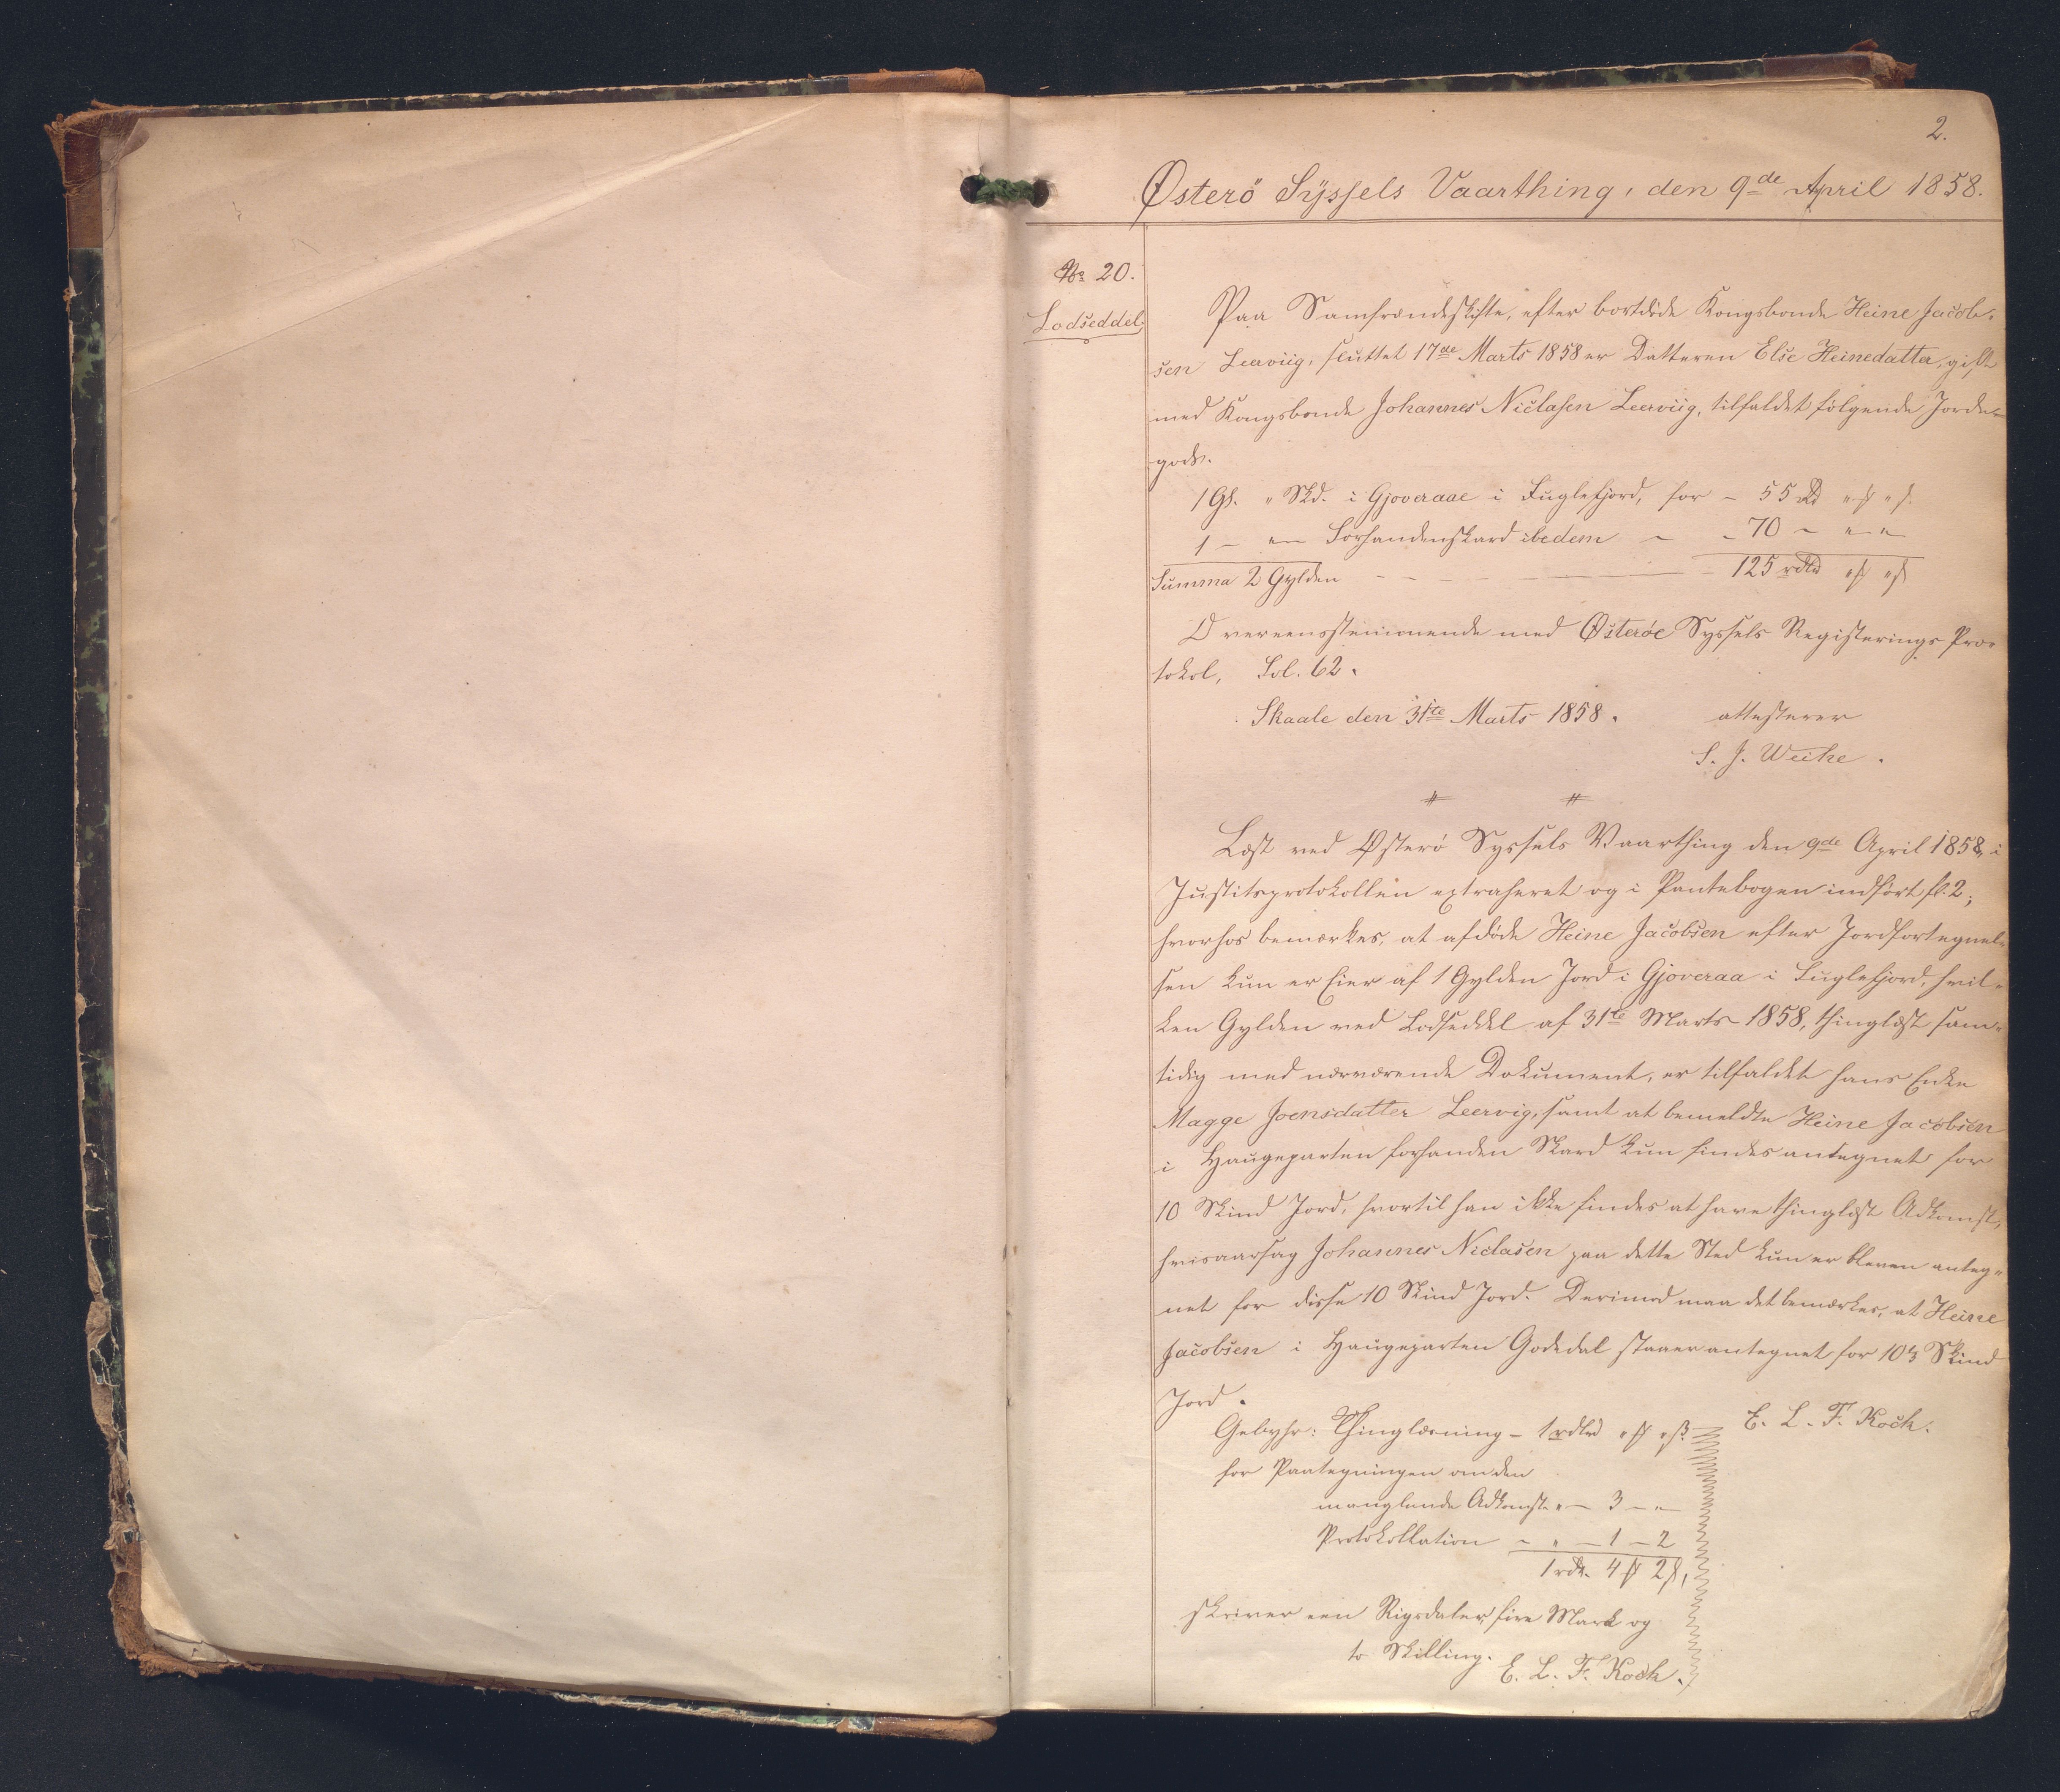 2.
Østerö Syssels Vaarthing, den 9de April 1858.
No 20.
Lodseddel.
Paa Samfrændeskifte, efter bortdøde Kongsbonde Heine Jacob-
sen Leerviig, sluttet 17de Marts 1858 er Datteren Else Heinedatter, gift
med Kongsbonde Johannes Niclasen Leerviig, tilfaldet følgende Jorde-
gods.
1 Gl. " Skd. i Gjoveraae i Fuglefjord, for - 55 Rd " ß " ß.
1 - " - Forhandenskard ibedem - - 70 - " - " -
Summa 2 Gylden - - - 125 rdlr " ß " ß
Overeensstemmende med Østeröe Syssels Registerings Pro-
tokol, Fol. 62.
Skaale den 31te Marts 1858. attesterer
S. J. Weihe.
Læst ved Østerö Syssels Vaarthing den 9de April 1858, i
Justitsprotokollen extraheret og i Pantebogen indført fl. 2;
hvorhos bemærkes, at afdøde Heine Jacobsen efter Jordfortegnel-
sen kun er Eier af 1 Gylden Jord i Gjoveraa i Fuglefjord, hvil-
ken Gylden ved Lodseddel af 31te Marts 1858, thinglæst sam-
tidig med nærværende Dokument, er tilfaldet hans Enke
Magge Joensdatter Leervig, samt at bemeldte Heine Jacobsen
i Haugeparten forhanden Skard kun findes antegnet for
10 Skind Jord, hvortil han ikke findes at have thinglæst Adkomst,
hvisaarsag Johannes Niclasen paa dette Sted kun er bleven anteg-
net for disse 10 Skind Jord. Derimod maa det bemærkes, at Heine
Jacobsen i Haugeparten Godedal staaer antegnet for 10 2/3 Skind
Jord.
E. L. F. Koch.
Gebyhr: Thinglæsning - 1 rdlr " ß " ß.
for Paategningen om den
manglende Adkomst " - 3 - " -
Protokollation - " - 1 - 2
1 rdr. 4 ß 2 ß,
skriver een Rigsdaler, fire Mark og
to Skilling.
E. L. F. Koch.